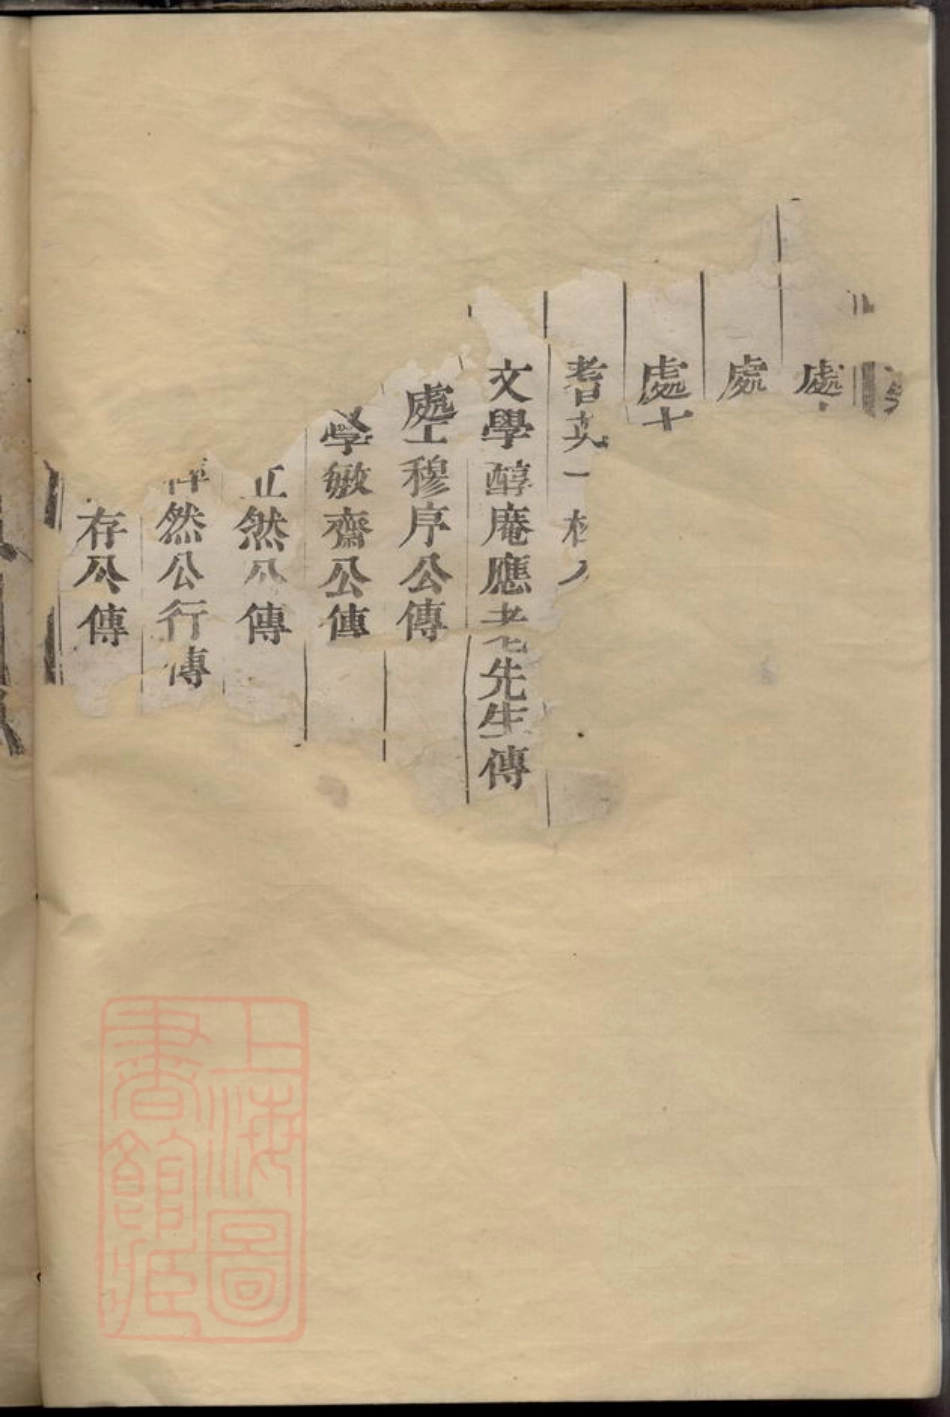 處
處
處士
耆英一
文學醇庵應老先生傳
處士穆序公傳
學敏齋公傳
然公傳
然公行傳
存公傳
上海圖書館藏